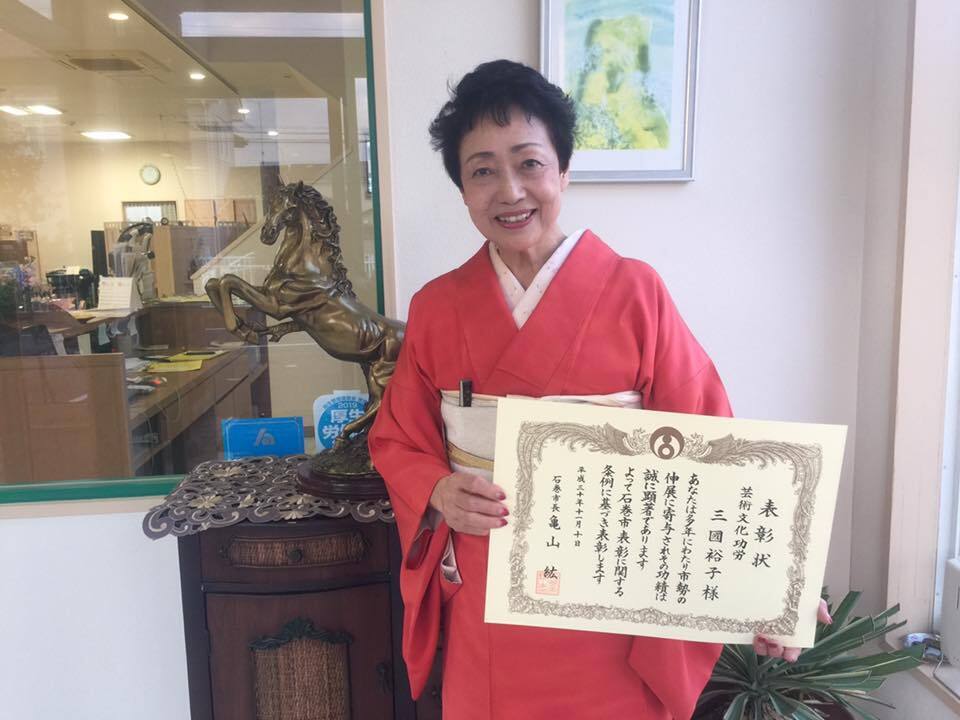 表彰状
芸術文化功労
三國裕子様
あなたは多年にわたり市勢の
伸展に寄与されその功績は
誠に顕著であります
よって石巻市表彰に関する
条例に基づき表彰します
平成三十年十一月十日
石巻市長 亀山 紘
2019
厚生